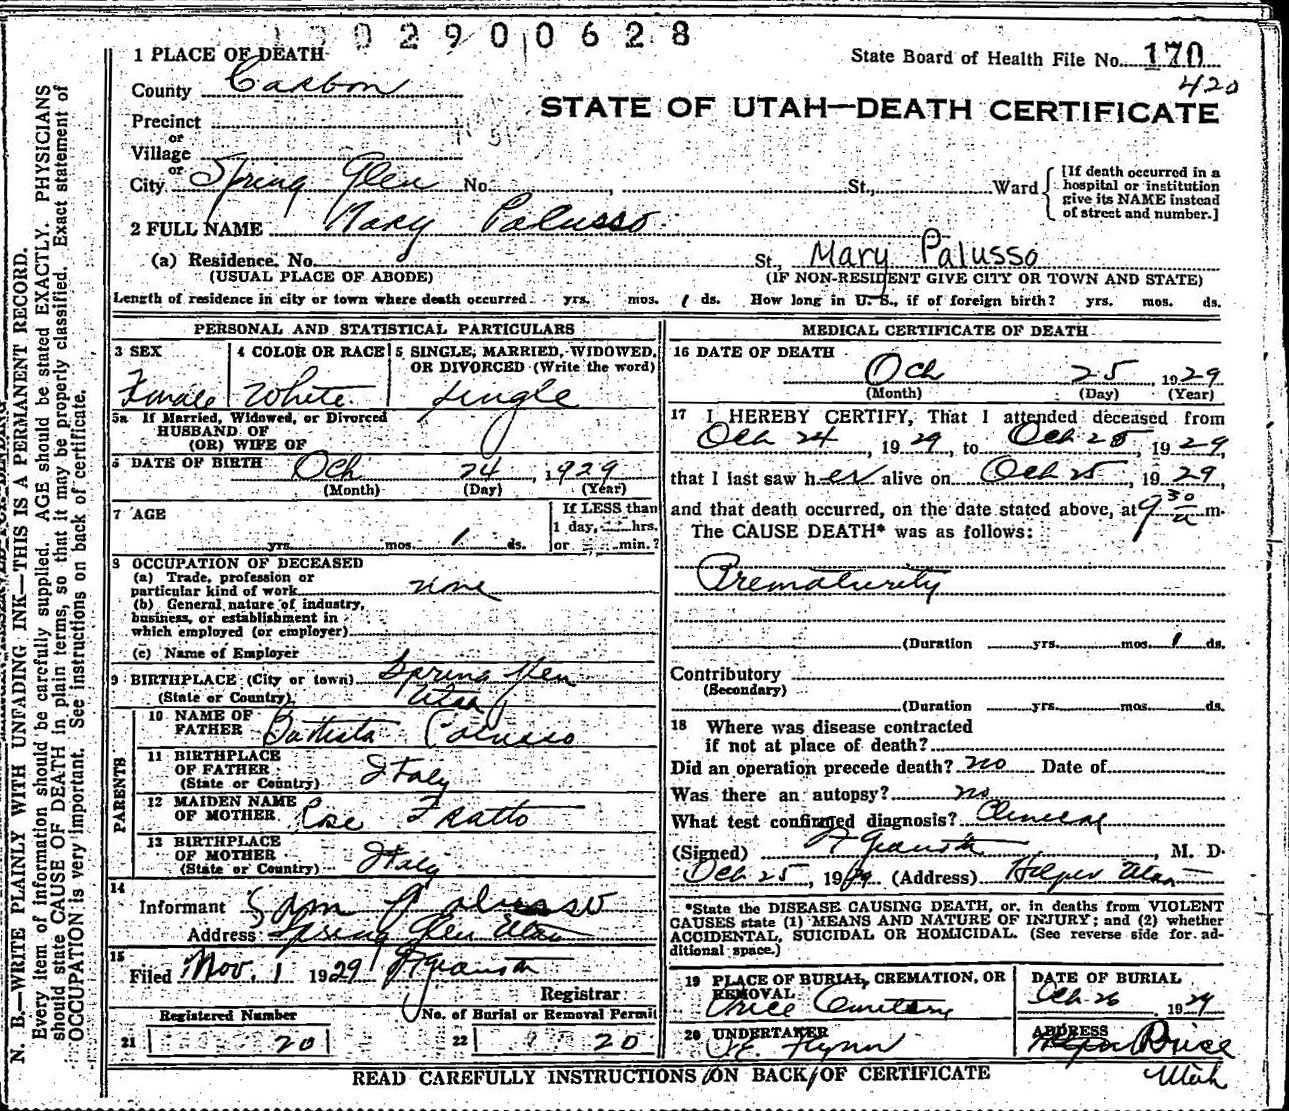 0 2 9 0 0 6 2 8
1 PLACE OF DEATH
State Board of Health File No. 170
420
County Carbon
STATE OF UTAH—DEATH CERTIFICATE
Precinct
or
Village
or
City Spring Glen No. , St., Ward
[If death occurred in a
hospital or institution
give its NAME instead
of street and number.]
2 FULL NAME Mary Palusso
(a) Residence. No. St., Mary Palusso
(USUAL PLACE OF ABODE) (IF NON-RESIDENT GIVE CITY OR TOWN AND STATE)
Length of residence in city or town where death occurred yrs. mos. 1 ds. How long in U. S., if of foreign birth? yrs. mos. ds.
PERSONAL AND STATISTICAL PARTICULARS
3 SEX Female
4 COLOR OR RACE White
5 SINGLE, MARRIED, WIDOWED,
OR DIVORCED (Write the word)
Single
5a If Married, Widowed, or Divorced
HUSBAND OF
(OR) WIFE OF
6 DATE OF BIRTH Oct 24, 1929
(Month) (Day) (Year)
7 AGE
yrs. mos. 1 ds.
If LESS than
1 day, hrs.
or min.?
8 OCCUPATION OF DECEASED
(a) Trade, profession or
particular kind of work none
(b) General nature of industry,
business, or establishment in
which employed (or employer)
(c) Name of Employer
9 BIRTHPLACE (City or town) Spring Glen
(State or Country) Utah
PARENTS
10 NAME OF
FATHER Battista Palusso
11 BIRTHPLACE
OF FATHER
(State or Country) Italy
12 MAIDEN NAME
OF MOTHER Rose Fratto
13 BIRTHPLACE
OF MOTHER
(State or Country) Italy
14
Informant Sam Palusso
Address Spring Glen Utah
15
Filed Nov. 1 1929
Registrar
Registered Number
21 20
No. of Burial or Removal Permit
22 20
MEDICAL CERTIFICATE OF DEATH
16 DATE OF DEATH
Oct 25, 1929
(Month) (Day) (Year)
17 I HEREBY CERTIFY, That I attended deceased from
Oct 24, 1929, to Oct 25, 1929,
that I last saw her alive on Oct 25, 1929,
and that death occurred, on the date stated above, at 9 30 a m.
The CAUSE DEATH* was as follows:
Prematurity
(Duration yrs. mos. 1 ds.
Contributory
(Secondary)
(Duration yrs. mos. ds.
18 Where was disease contracted
if not at place of death?
Did an operation precede death? no Date of
Was there an autopsy? no
What test confirmed diagnosis? Clinical
(Signed) , M. D.
Oct 25, 1929 (Address) Helper Utah
*State the DISEASE CAUSING DEATH, or, in deaths from VIOLENT
CAUSES state (1) MEANS AND NATURE OF INJURY; and (2) whether
ACCIDENTAL, SUICIDAL OR HOMICIDAL. (See reverse side for ad-
ditional space.)
19 PLACE OF BURIAL, CREMATION, OR
REMOVAL
Price Cemetery
DATE OF BURIAL
Oct 26 1929
20 UNDERTAKER
J.E. Flynn
ADDRESS
Helper Price
Utah
READ CAREFULLY INSTRUCTIONS ON BACK OF CERTIFICATE
N. B.—WRITE PLAINLY WITH UNFADING INK—THIS IS A PERMANENT RECORD.
Every item of information should be carefully supplied. AGE should be stated EXACTLY. PHYSICIANS
should state CAUSE OF DEATH in plain terms, so that it may be properly classified. Exact statement of
OCCUPATION is very important. See instructions on back of certificate.